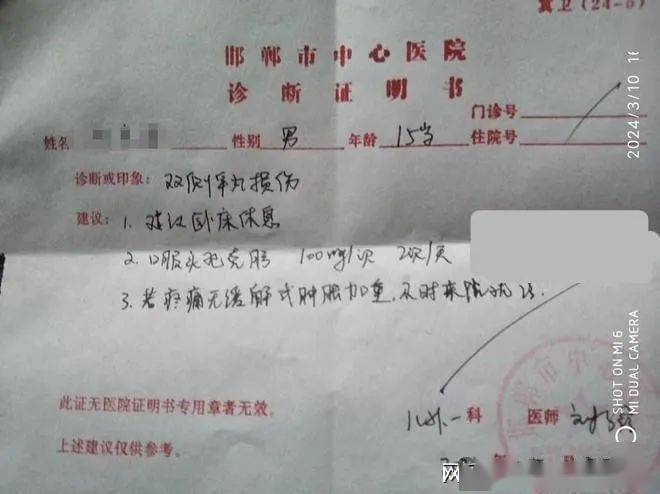 冀卫(24-5)
邯郸市中心医院
诊断证明书
门诊号
姓名 性别 男 年龄 15岁 住院号
诊断或印象: 双侧睾丸损伤
建议: 1. 建议卧床休息
2. 口服头孢克肟 100mg/次 2次/天
3. 若疼痛无缓解或肿胀加重,及时来院就诊.
此证无医院证明书专用章者无效。
上述建议仅供参考。
儿外一科 医师
年
网
邯郸市中
2024/3/10 16
SHOT ON MI 6
MI DUAL CAMERA